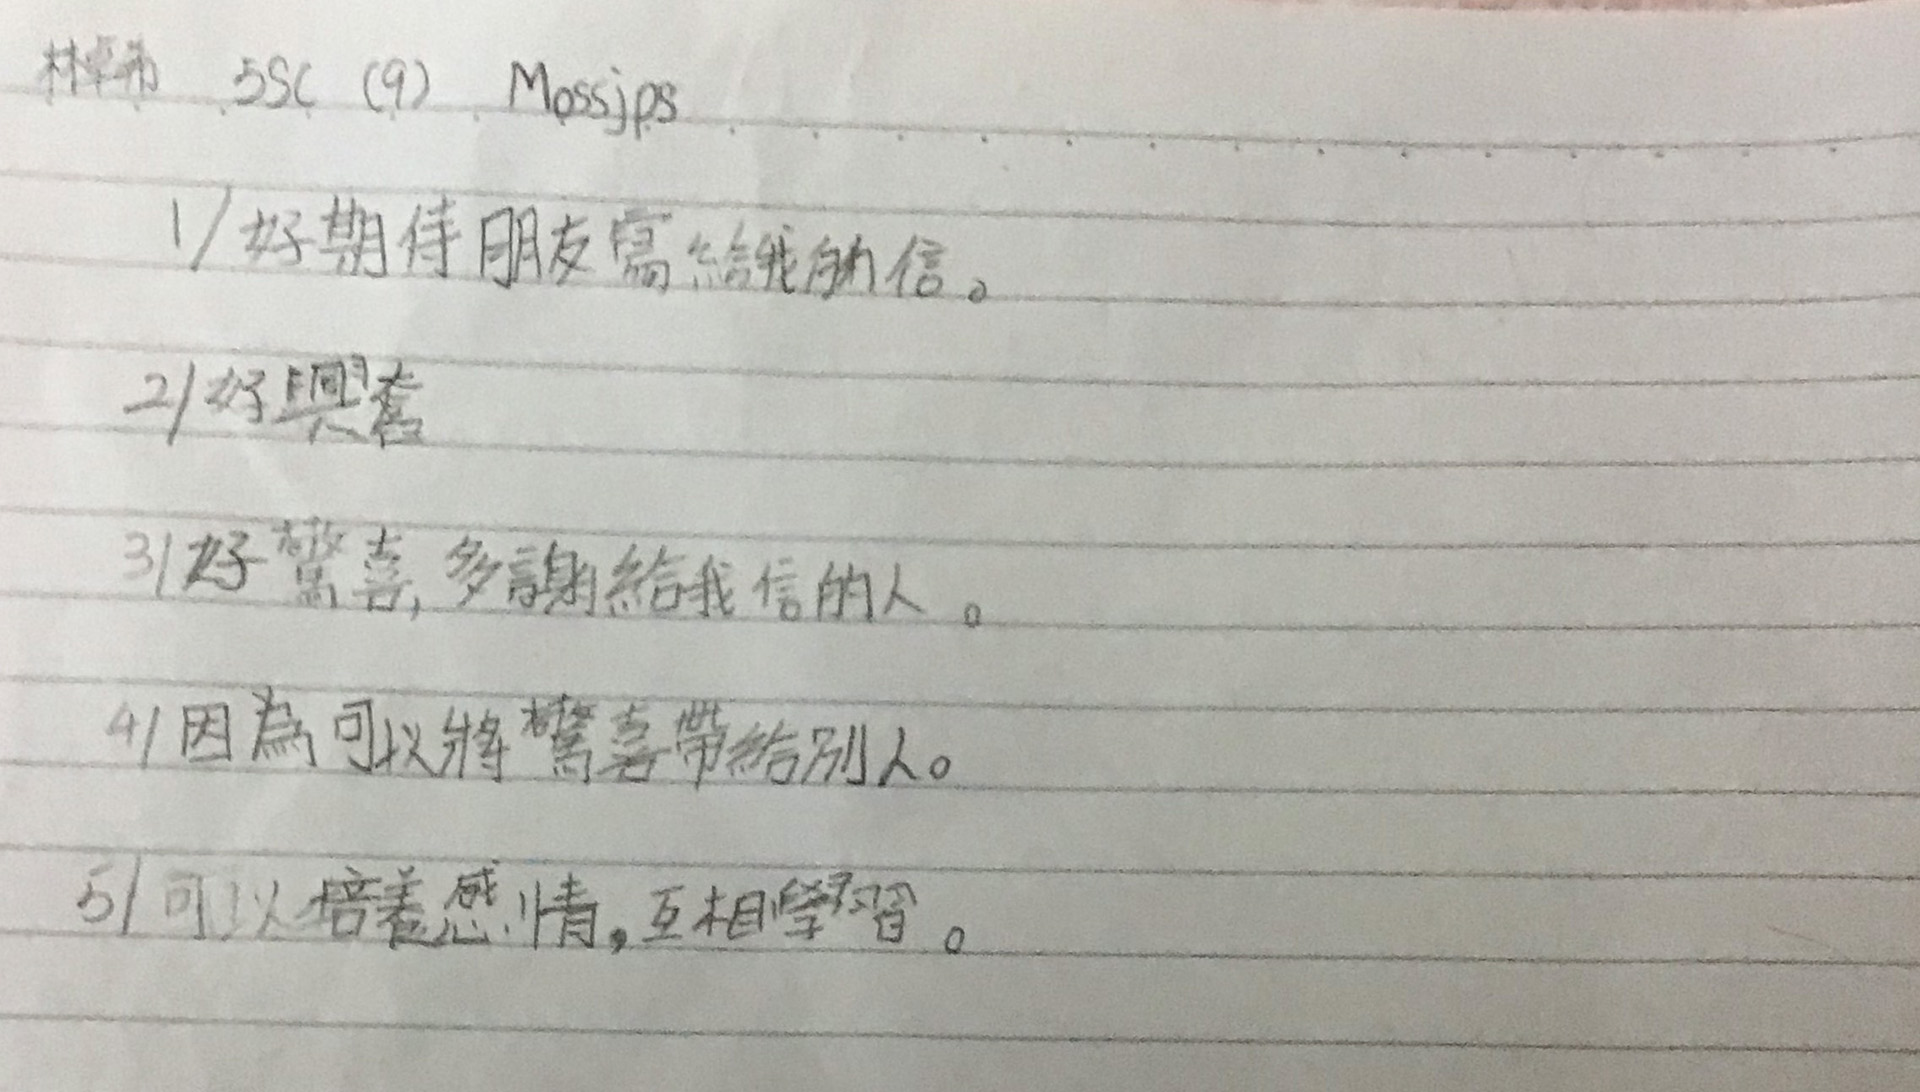 林卓希 5SC (9) Mossjps
1/ 好期待朋友寫給我的信。
2/ 好興奮
3/ 好驚喜,多謝給我信的人。
4/ 因為可以將驚喜帶給別人。
5/ 可以培養感情,互相學習。